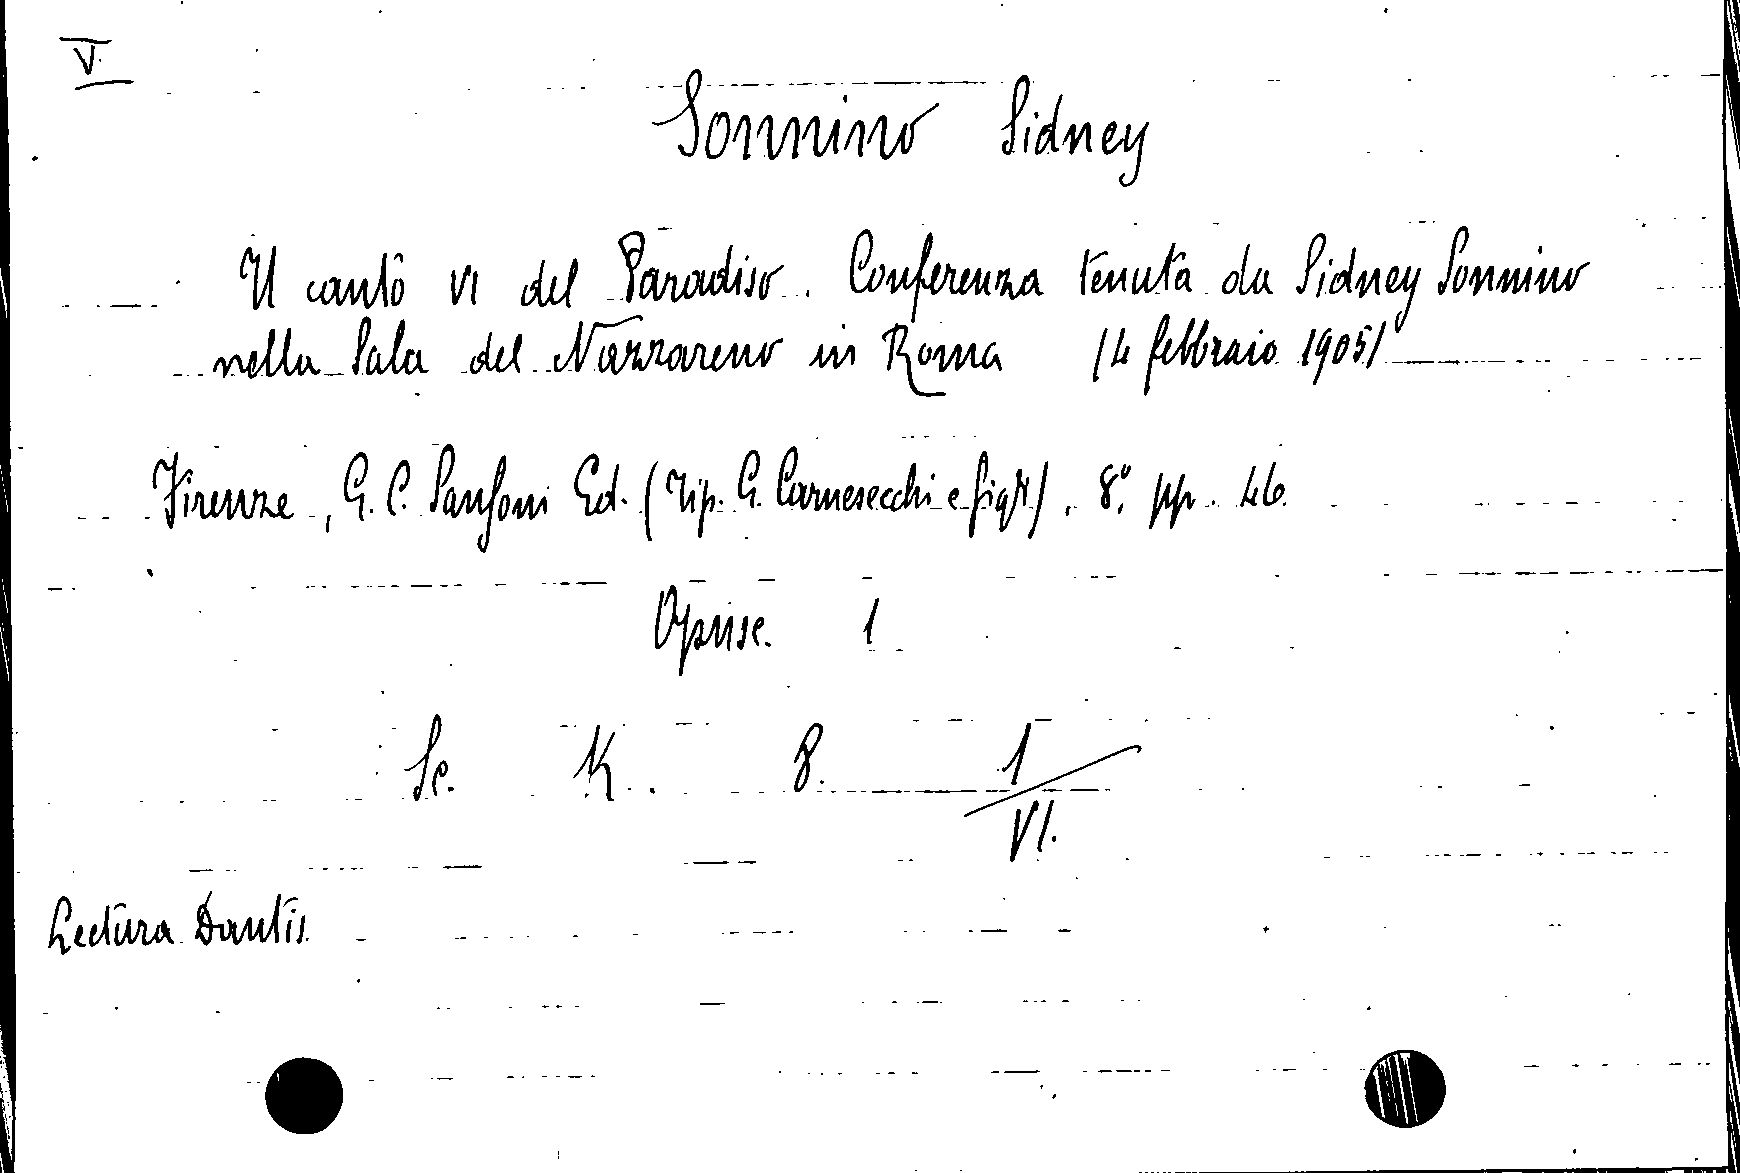 V.
Sonnino Sidney
Il canto VI del Paradiso. Conferenza tenuta da Sidney Sonnino
nella Sala del Nazzareno in Roma /4 febbraio 1905/
Firenze, G. C. Sansoni Ed. (Tip. G. Carnesecchi e figli). 8°. pp. 46.
Opusc. 1
Sc. K. 8. 1/VI.
Lectura Dantis